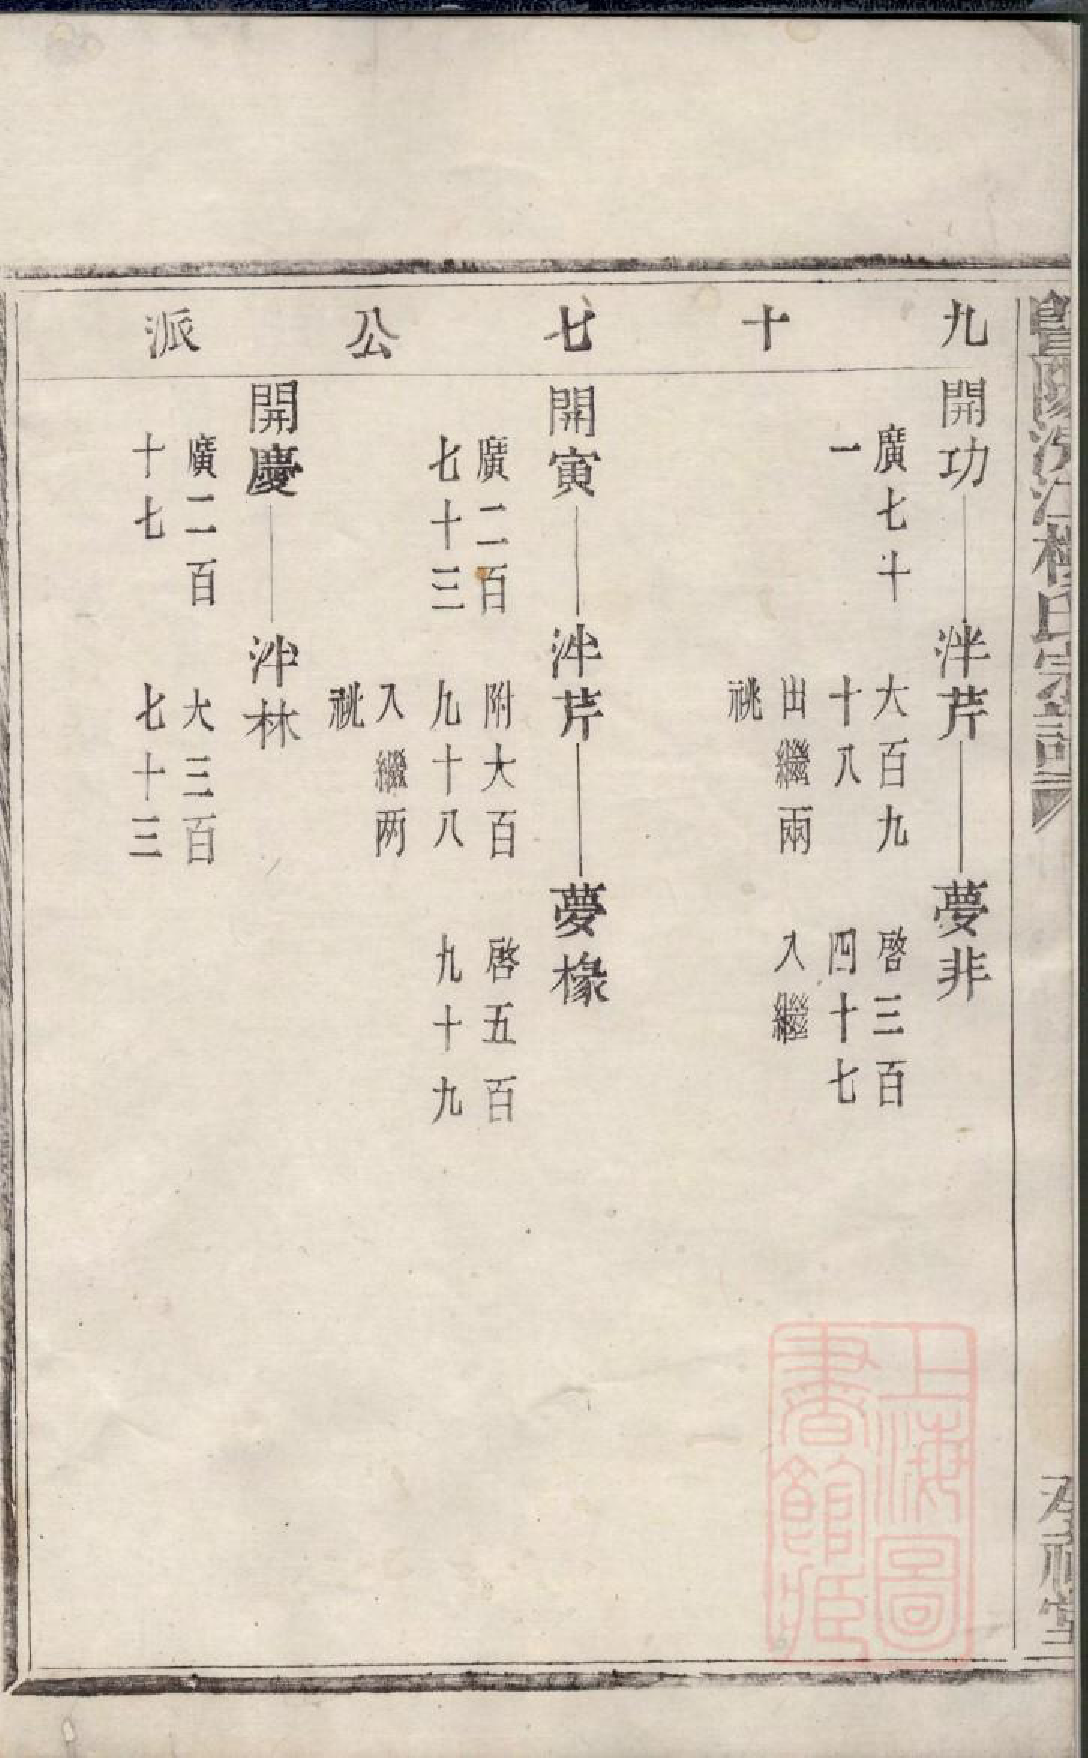 九十七公派
開功
廣七十
一
泮芹
大百九
十八
出繼兩
祧
夢非
啓三百
四十七
入繼
開寅
廣二百
七十三
泮芹
附大百
九十八
入繼两
祧
夢椽
啓五百
九十九
開慶
廣二百
十七
泮林
大三百
七十三
上海圖
書館藏